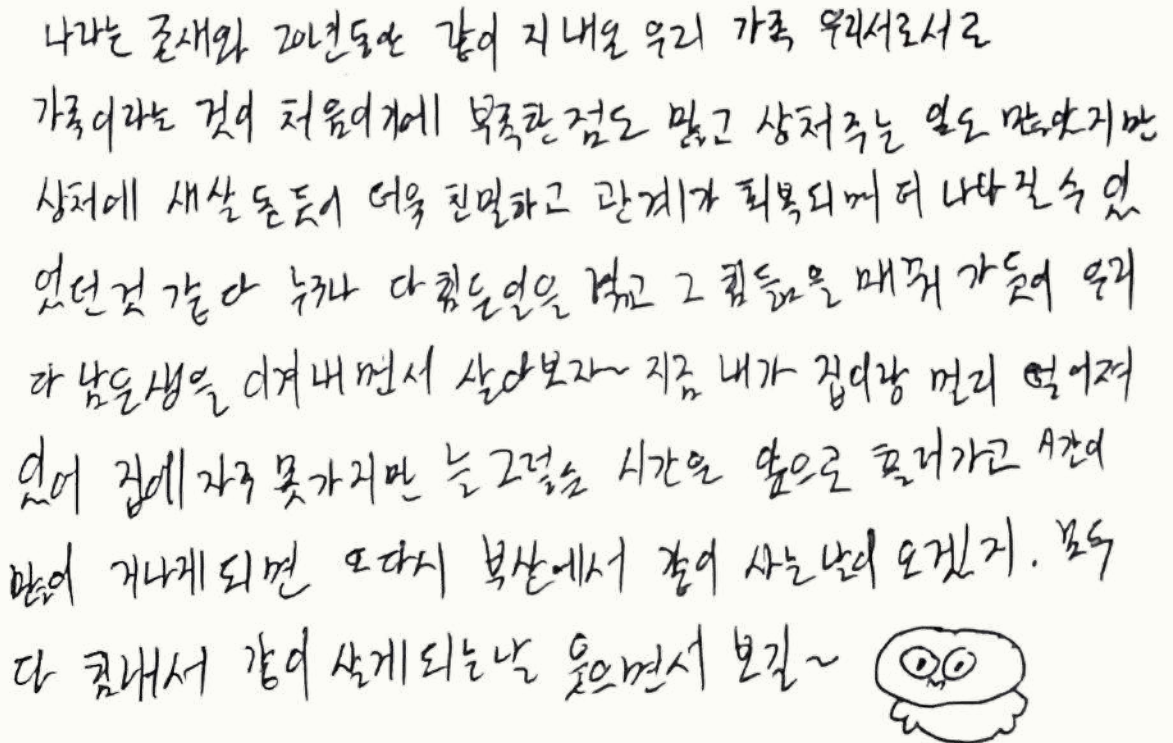 나라는 존재와 20년동안 같이 지내온 우리 가족 우리서로서로
가족이라는 것이 처음이기에 부족한점도 많고 상처주는 일도 많았지만
상처에 새살 돋듯이 더욱 친밀하고 관계가 회복되며 더 나아질수 있
었던것 같다 누구나 다 힘든일을 겪고 그 힘듦을 매꿔 가듯이 우리
다 남은생을 이겨내면서 살아보자~ 지금 내가 집이랑 멀리 떨어져
있어 집에 자주 못가지만 늘 그렇듯 시간은 앞으로 흘러가고 시간이
많이 지나게 되면 또다시 부산에서 같이 사는날이 오겠지. 모두
다 힘내서 같이 살게되는날 웃으면서 보길~